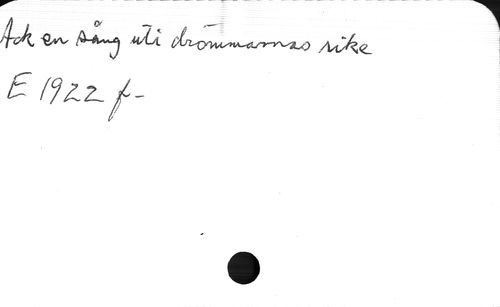 Ack en sång uti drömmarnas rike
E 1922 f-